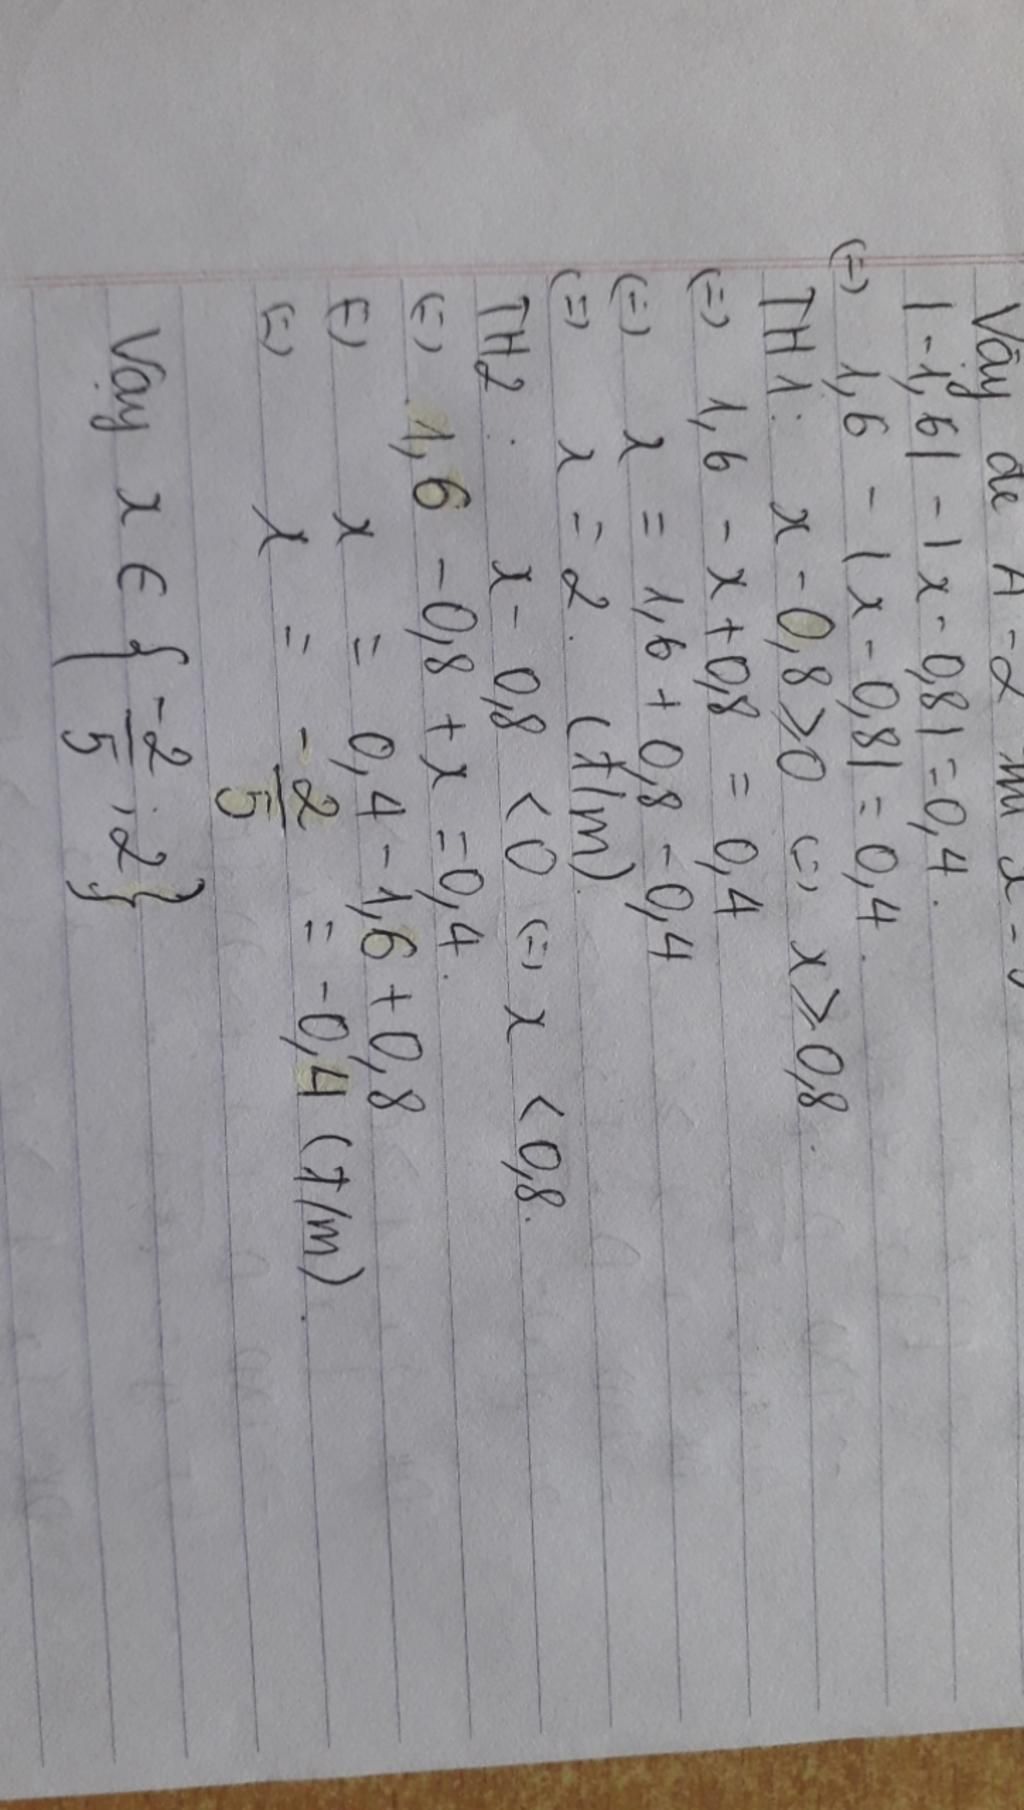 Vậy để A = 2 thì x =
|-1,6| - |x - 0,8| = 0,4.
(=) 1,6 - |x - 0,8| = 0,4.
TH1: x - 0,8 ≥ 0 (=) x ≥ 0,8.
(=) 1,6 - x + 0,8 = 0,4
(=) x = 1,6 + 0,8 - 0,4
(=) x = 2. (t/m)
TH2: x - 0,8 < 0 (=) x < 0,8.
(=) 1,6 - 0,8 + x = 0,4.
(=) x = 0,4 - 1,6 + 0,8
(=) x = -2/5 = -0,4 (t/m).
Vậy x ∈ {-2/5; 2}